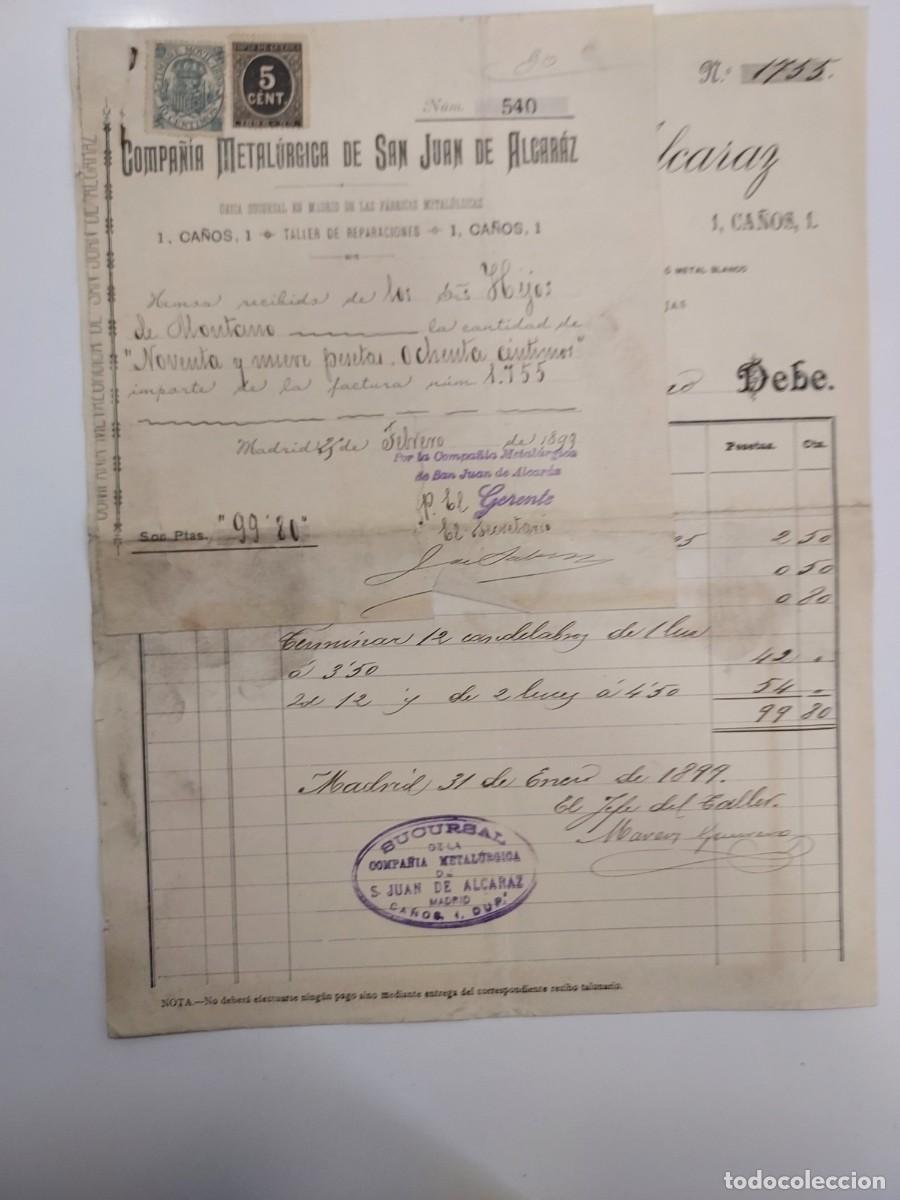 5
CENT.
Núm. 540
COMPAÑÍA METALÚRGICA DE SAN JUAN DE ALCARÁZ
ÚNICA SUCURSAL EN MADRID DE LAS FÁBRICAS METALÚRGICAS
1, CAÑOS, 1 TALLER DE REPARACIONES 1, CAÑOS, 1
Hemos recibido de los Sres Hijos
de Montano la cantidad de
"Noventa y nueve pesetas. Ochenta céntimos"
importe de la factura núm 1.755
Madrid de Febrero de 1899
Por la Compañía Metalúrgica
de San Juan de Alcaráz
P. El Gerente
El Secretario
Son Ptas. "99'80"
COMPAÑIA METALÚRGICA DE SAN JUAN DE ALCARAZ
N.º 1755.
Alcaraz
1, CAÑOS, 1.
Ó METAL BLANCO
JAS
Debe.
Pesetas. Cts.
2 50
0 50
0 80
Terminar 12 candelabros de 1 luz
á 3'50 42 "
Id 12 y de 2 luces á 4'50 54 "
99 80
Madrid 31 de Enero de 1899.
El Jefe del Taller.
SUCURSAL
DE LA
COMPAÑIA METALÚRGICA
DE
S. JUAN DE ALCARAZ
MADRID
CAÑOS, 1, DUP.º
NOTA.—No deberá efectuarse ningún pago sino mediante entrega del correspondiente recibo talonario.
todocoleccion